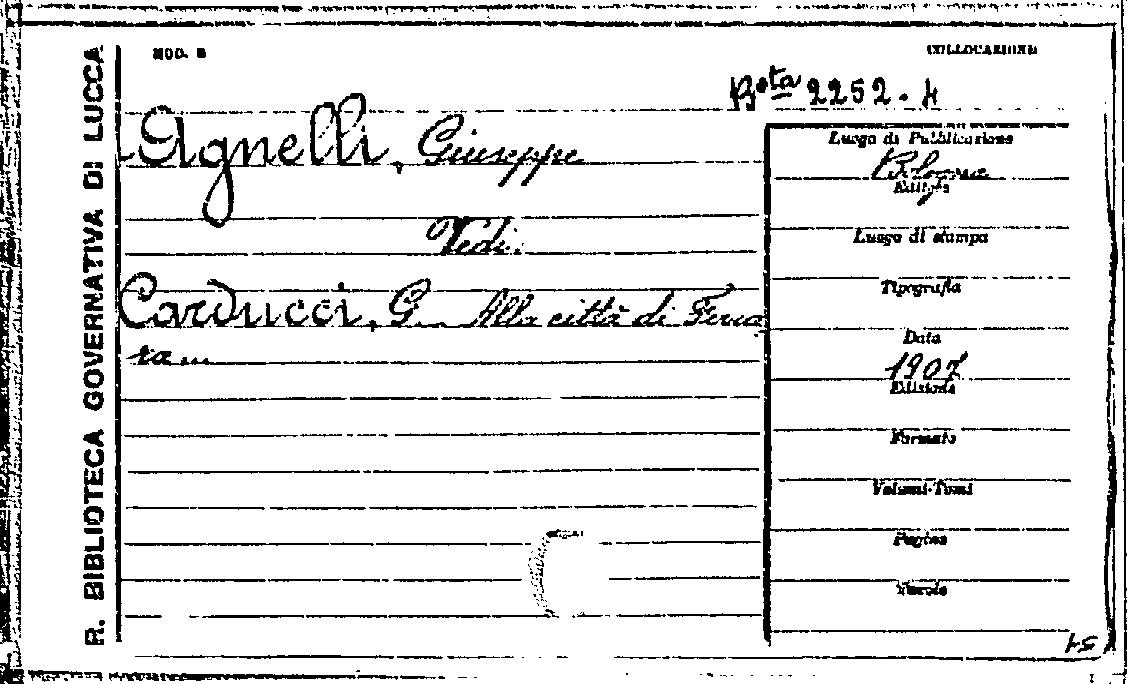 R. BIBLIOTECA GOVERNATIVA DI LUCCA
MOD. B
COLLOCAZIONE
Bsta 2252.4
Agnelli, Giuseppe
Vedi:
Carducci, G... Alla città di Ferra
ra...
Luogo di Pubblicazione
Bologna
Editore
Luogo di stampa
Tipografia
Data
1907
Edizione
Formato
Volumi-Tomi
Pagine
Tavole